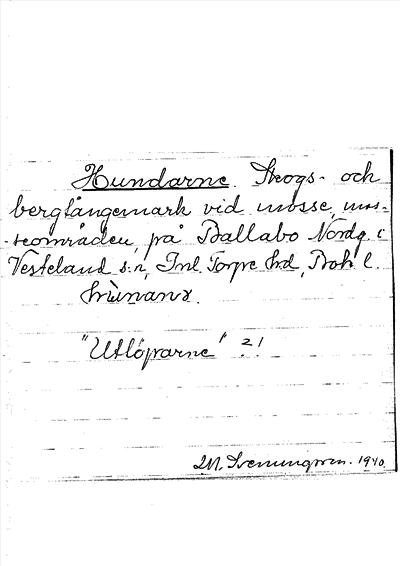 Hundarne. Skogs- och
bergfångemark vid mosse, mos-
-seområden, på Ballabo Nordg. i
Vesteland s:n, Inl. Torpe hrd, Boh l.
"Utlöparne" ?!
Sven. 1940.